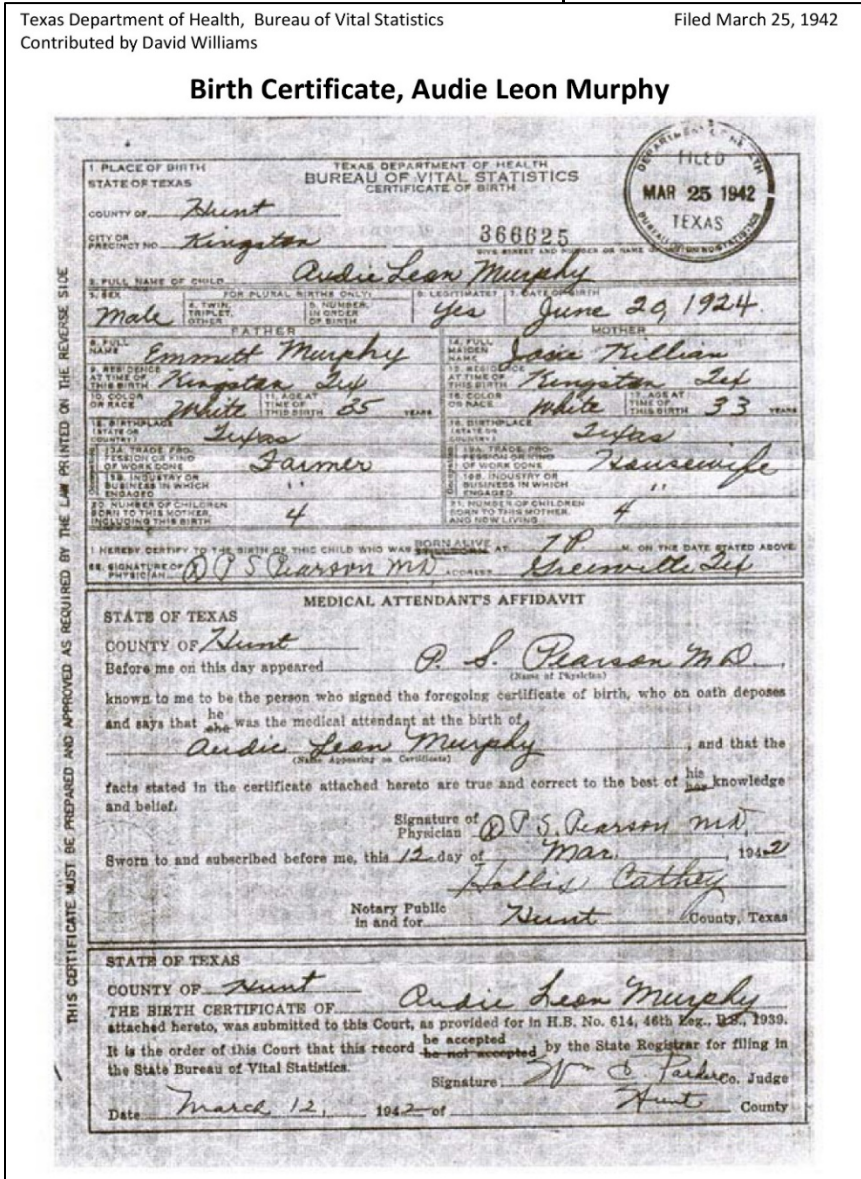 Texas Department of Health, Bureau of Vital Statistics Filed March 25, 1942
Contributed by David Williams
Birth Certificate, Audie Leon Murphy
DEPARTMENT OF HEALTH
FILED
MAR 25 1942
TEXAS
1 PLACE OF BIRTH
STATE OF TEXAS
TEXAS DEPARTMENT OF HEALTH
BUREAU OF VITAL STATISTICS
CERTIFICATE OF BIRTH
COUNTY OF Hunt
CITY OR PRECINCT NO. Kingston
366625
2. FULL NAME OF CHILD Audie Leon Murphy
3. SEX Male
FOR PLURAL BIRTHS ONLY:
4. TWIN, TRIPLET, OTHER
5. NUMBER, IN ORDER OF BIRTH
6. LEGITIMATE? Yes
7. DATE OF BIRTH June 20, 1924.
FATHER
8. FULL NAME Emmett Murphy
9. RESIDENCE AT TIME OF THIS BIRTH Kingston Tex
10. COLOR OR RACE White
11. AGE AT TIME OF THIS BIRTH 35 YEARS
12. BIRTHPLACE (STATE OR COUNTRY) Texas
13A. TRADE, PROFESSION OR KIND OF WORK DONE Farmer
13B. INDUSTRY OR BUSINESS IN WHICH ENGAGED "
MOTHER
14. FULL MAIDEN NAME Josie Killian
15. RESIDENCE AT TIME OF THIS BIRTH Kingston Tex
16. COLOR OR RACE White
17. AGE AT TIME OF THIS BIRTH 33 YEARS
18. BIRTHPLACE (STATE OR COUNTRY) Texas
19A. TRADE, PROFESSION OR KIND OF WORK DONE Housewife
19B. INDUSTRY OR BUSINESS IN WHICH ENGAGED "
20. NUMBER OF CHILDREN BORN TO THIS MOTHER, INCLUDING THIS BIRTH 4
21. NUMBER OF CHILDREN BORN TO THIS MOTHER AND NOW LIVING 4
I HEREBY CERTIFY TO THE BIRTH OF THIS CHILD WHO WAS BORN ALIVE AT 7 P. M. ON THE DATE STATED ABOVE
22. SIGNATURE OF PHYSICIAN P S Pearson MD ADDRESS Greenville Tex
MEDICAL ATTENDANT'S AFFIDAVIT
STATE OF TEXAS
COUNTY OF Hunt
Before me on this day appeared P. S. Pearson M D.
(Name of Physician)
known to me to be the person who signed the foregoing certificate of birth, who on oath deposes
and says that he she was the medical attendant at the birth of
Audie Leon Murphy, and that the
(Name Appearing on Certificate)
facts stated in the certificate attached hereto are true and correct to the best of his her knowledge
and belief.
Signature of Physician P S. Pearson MD.
Sworn to and subscribed before me, this 12 day of Mar., 1942
Hollis Cathey
Notary Public in and for Hunt County, Texas
STATE OF TEXAS
COUNTY OF Hunt
THE BIRTH CERTIFICATE OF Audie Leon Murphy
attached hereto, was submitted to this Court, as provided for in H.B. No. 614, 46th Leg., R.S., 1939.
It is the order of this Court that this record be accepted be not accepted by the State Registrar for filing in
the State Bureau of Vital Statistics.
Signature Wm C. Parker Co. Judge
Date March 12, 1942 of Hunt County
THIS CERTIFICATE MUST BE PREPARED AND APPROVED AS REQUIRED BY THE LAW PRINTED ON THE REVERSE SIDE